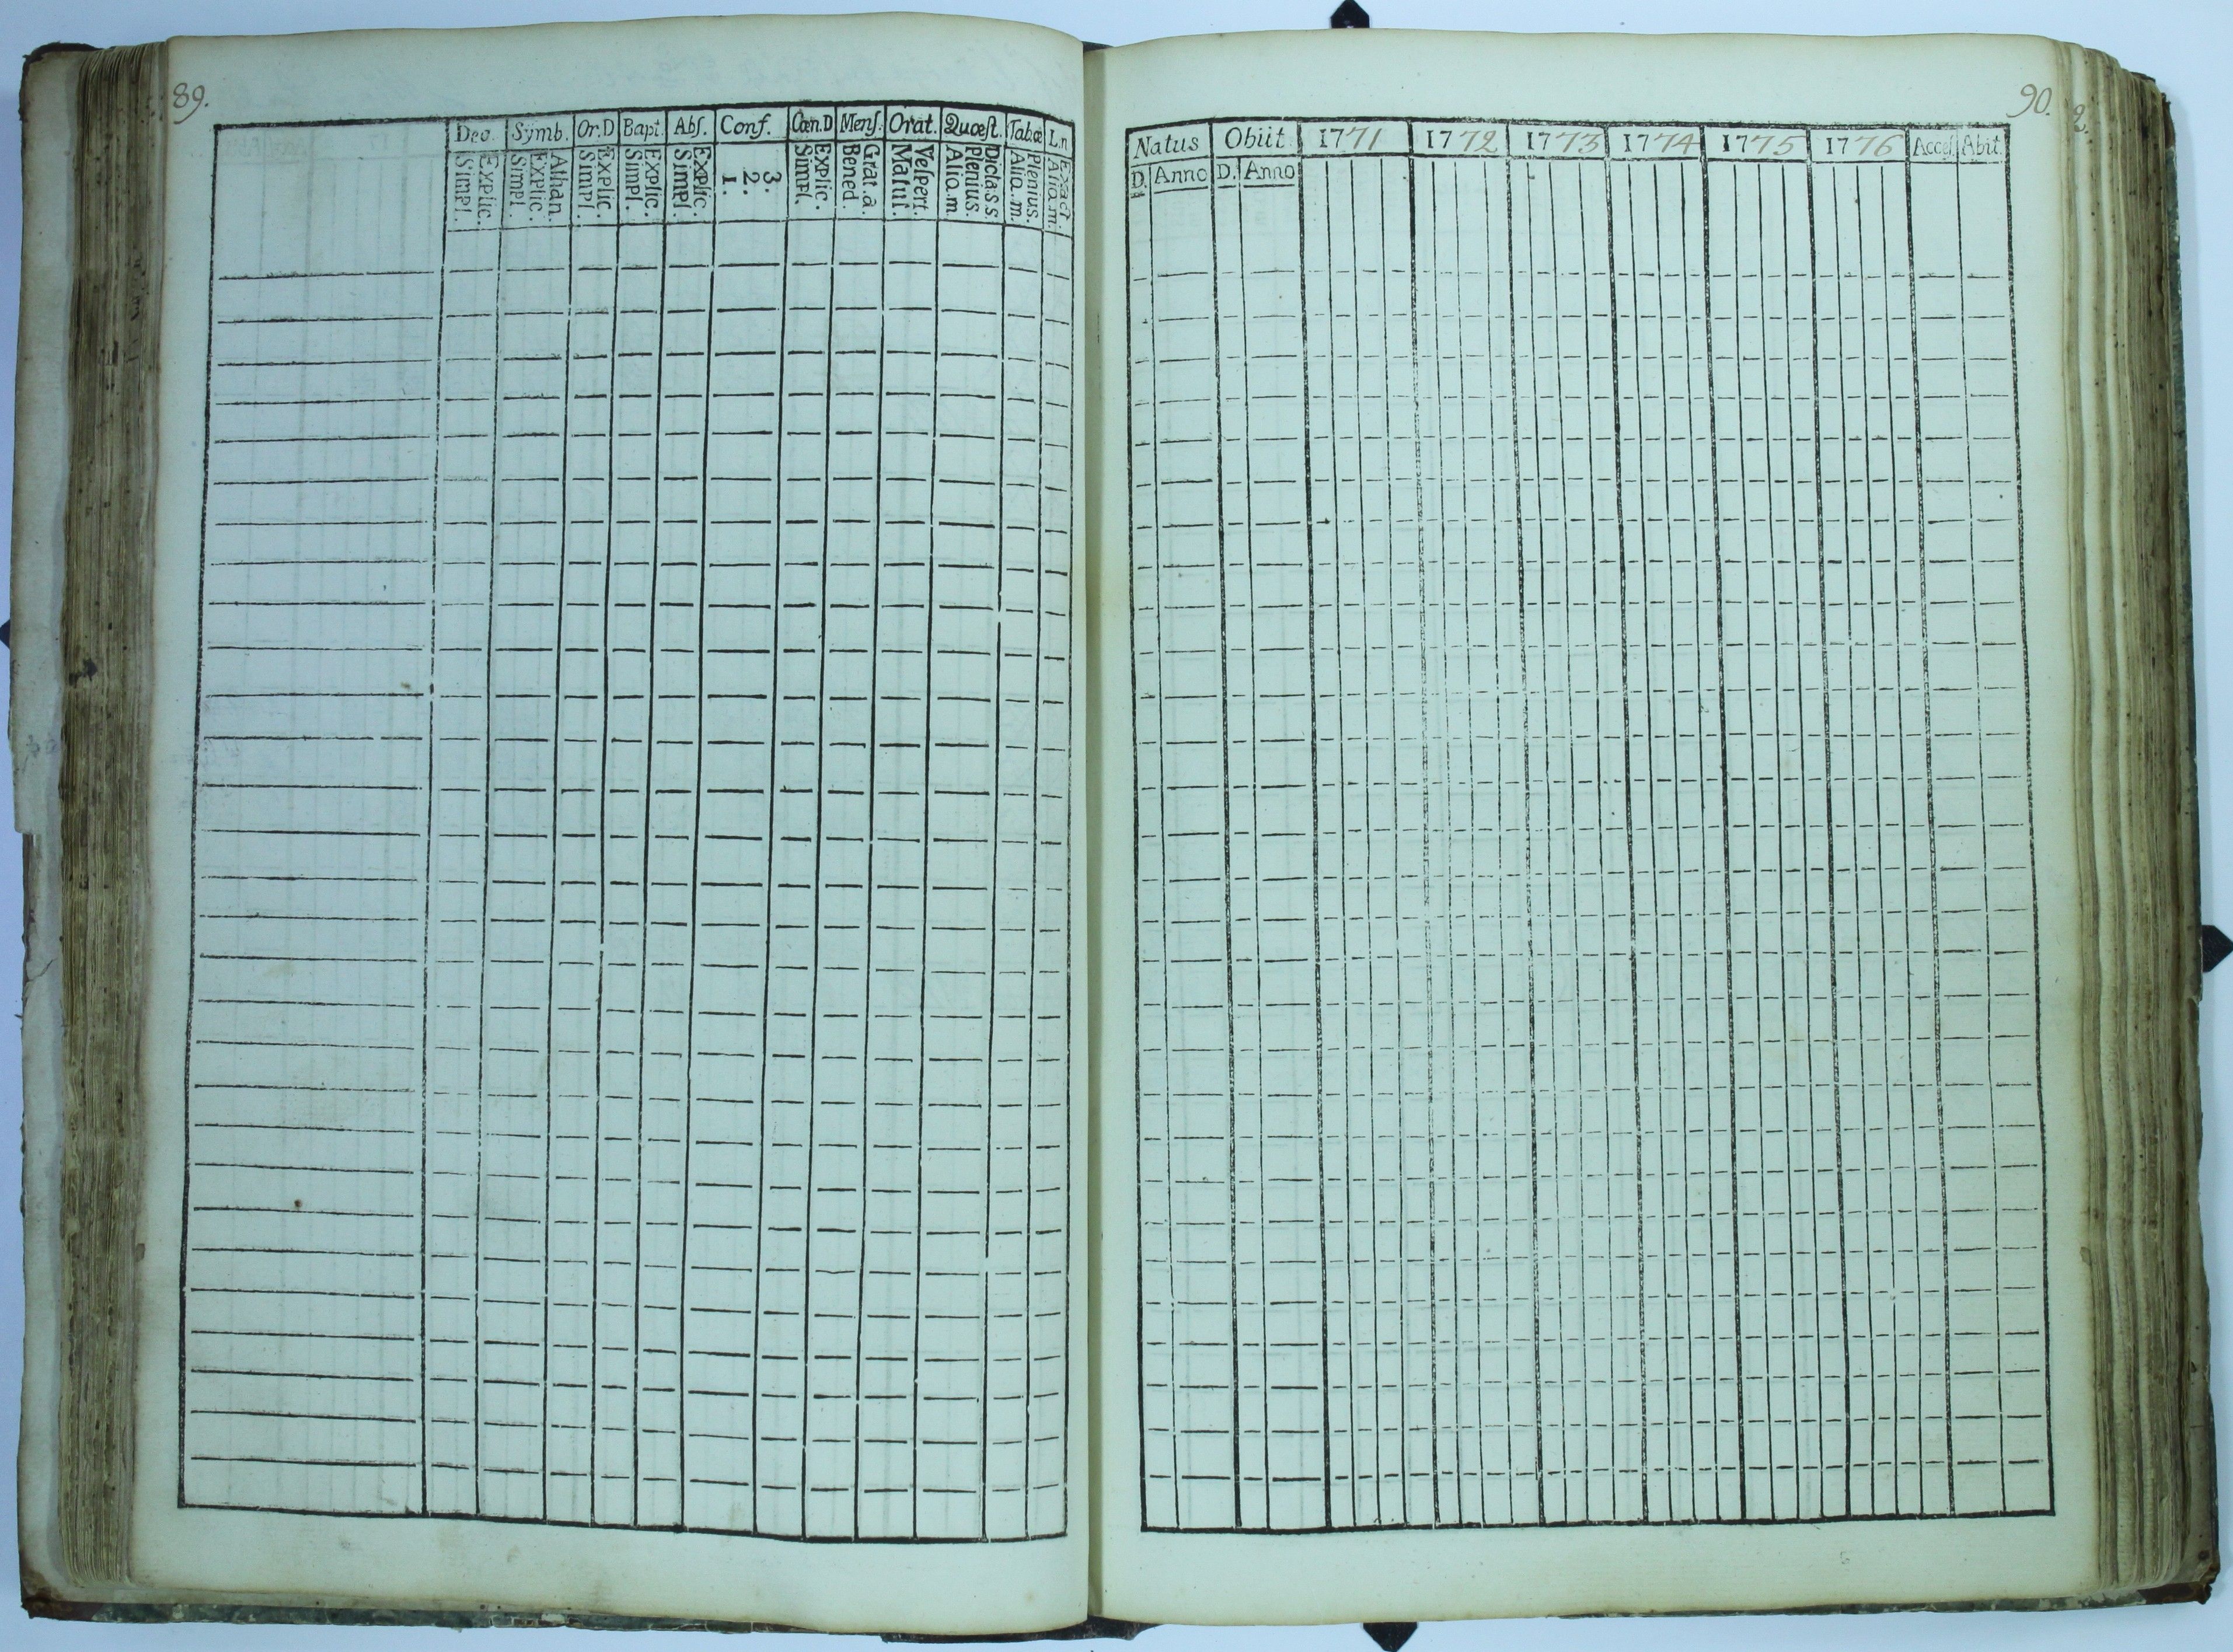 89.
Dec. Symb. Or.D Bapt. Abs. Conf. Cœn.D Mens. Orat. Quœst. Tab.œ L.n
Explic. Simpl.
Athan. Explic. Simpl.
Explic. Simpl.
Explic. Simpl.
Explic. Simpl.
3. 2. 1.
Explic. Simpl.
Grat.a. Bened
Vespert. Matut.
Dicta.s.s. Plenius. Alio.m.
Plenius. Alio.m.
Exact. Alio.m.
90.
Natus Obiit 1771 1772 1773 1774 1775 1776 Acces. Abit.
D. Anno D. Anno